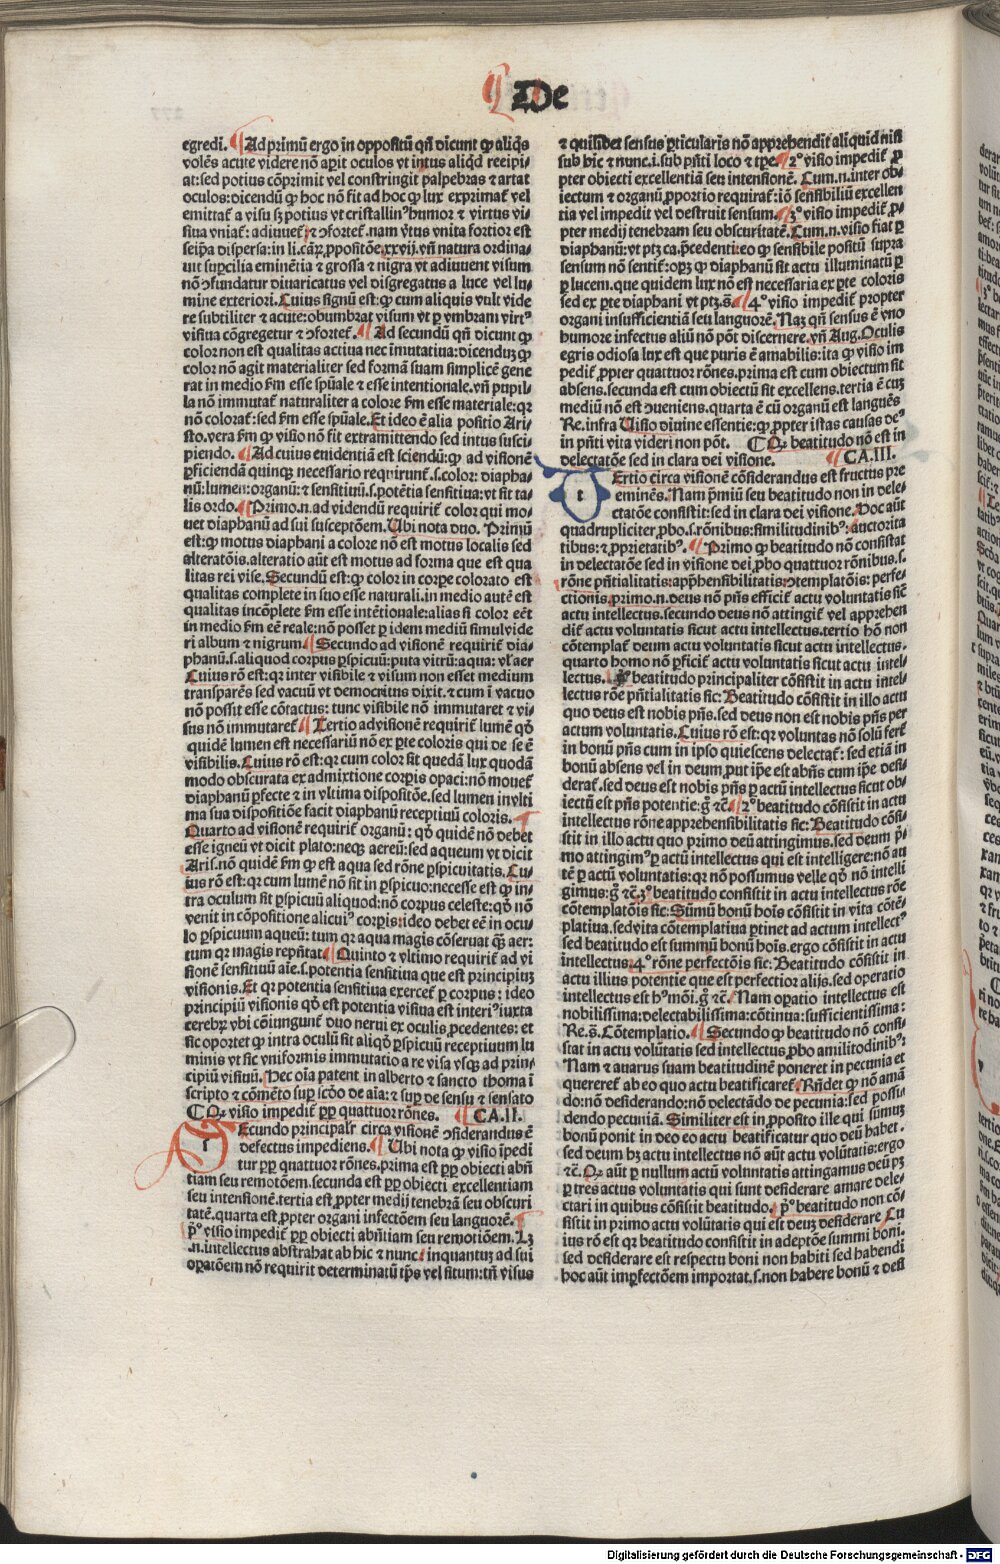 De
egredi. Ad primū ergo in oppositū qñ dicunt ꝙ aliq̇s
volēs acute videre nō aperit oculos vt intus aliqd̓ recipi⸗
at: sed potius cōprimit vel constringit palpebras ⁊ artat
oculos: dicendū ꝙ hoc nō fit ad hoc ꝙ lux exprimat̉ vel
emittat̉ a visu sꝫ potius vt cristallin⁹ humor ⁊ virtus vi⸗
siua vniat̉: adiuuet̉ ⁊ ꝯfortet̉. nam v̓tus vnita fortior est
seip̄a dispersa: in li. cāꝝ ꝓpositōe xxvij. vñ natura ordina⸗
uit suꝑcilia eminētia ⁊ grossa ⁊ nigra vt adiuuent visum
nō ꝯfundatur diuaricatus vel disgregatus a luce vel lu⸗
mine exteriori. Cuius signū est: ꝙ cum aliquis vult vide
re subtiliter ⁊ acute: obumbrat visum vt ꝑ vmbram virt⁹
visiua cōgregetur ⁊ ꝯfortet̉. Ad secundū qñ dicunt ꝙ
color non est qualitas actiua nec īmutatiua: dicendūꝫ ꝙ
color nō agit materialiter sed formā suam simplicē gene
rat in medio s̄m esse spūale ⁊ esse intentionale. vñ pupil⸗
la nō immutat̉ naturaliter a colore s̄m esse materiale: qꝛ
nō colorat̉: sed s̄m esse spūale. Et ideo ē alia positio Ari⸗
sto. vera s̄m ꝙ visio nō fit extramittendo sed intus susci⸗
piendo. Ad cuius euidentiā est sciendū: ꝙ ad visionē
ꝑficiendā quinqꝫ necessario requirunt̉. s. color: diapha⸗
nū: lumen: organū: ⁊ sensitiuū. s. potētia sensitiua: vt sit ta⸗
lis ordo. Primo. n. ad videndū requirit̉ color qui mo⸗
uet diaphanū ad sui susceptōem. Ubi nota duo. Primū
est: ꝙ motus diaphani a colore nō est motus localis sed
alteratōis. alteratio aūt est motus ad forma que est qua
litas rei vise. Secundū est: ꝙ color in corꝑe colorato est
qualitas complete in suo esse naturali. in medio autē est
qualitas incōplete s̄m esse intētionale: alias si color eēt
in medio s̄m eē reale: nō posset ꝑ idem mediū simul vide
ri album ⁊ nigrum. Secundo ad visionē requirit̉ dia⸗
phanū. s. aliquod corpus ꝑspicuū: puta vitrū: aqua: vl̓ aer
Cuius rō est: qꝛ inter visibile ⁊ visum non esset medium
transparēs sed vacuū vt democritus dixit. ⁊ cum ī vacuo
nō possit esse cōtactus: tunc visibile nō immutaret ⁊ vi⸗
sus nō immutaret̉ Tertio ad visionē requirit̉ lumē qð
quidē lumen est necessariū nō ex ꝑte coloris qui de se ē
visibilis. Cuius rō est: qꝛ cum color sit quedā lux quodā
modo obscurata ex admixtione corꝑis opaci: nō mouet̉
diaphanū ꝑfecte ⁊ in vltima dispositōe. sed lumen in vlti
ma sua dispositiōe facit diaphanū receptiuū coloris.
Quarto ad visionē requirit̉ organū: qð quidē nō debet
esse igneū vt dicit plato: neqꝫ aereū: sed aqueum vt dicit
Aris. nō quidē s̄m ꝙ est aqua sed rōne ꝑspicuitatis. Cu⸗
ius rō est: qꝛ cum lumē nō sit in ꝑspicuo: necesse est ꝙ in⸗
tra oculum sit ꝑspicuū aliquod: nō corpus celeste: qð nō
venit in cōpositione alicui⁹ corꝑis: ideo debet eē in ocu⸗
lo ꝑspicuum aqueū: tum qꝛ aqua magis cōseruat q̄ꝫ aer:
tum qꝛ magis repn̄tat. Quinto ⁊ vltimo requirit̉ ad vi
sionē sensitiuū aīe. s. potentia sensitiua que est principiuꝫ
visionis. Et qꝛ potentia sensitiua exercet̉ ꝑ corpus: ideo
principiū visionis qð est potentia visiua est interi⁹ iuxta
cerebꝝ vbi cōiungunt̉ duo nerui ex oculis ꝓcedentes: et
sic oportet ꝙ intra oculū sit aliqð ꝑspicuū receptiuum lu
minis vt sic vniformis immutatio a re visa vsqꝫ ad prin⸗
cipiū visiuū. Hec oīa patent in alberto ⁊ sancto thoma ī
scripto ⁊ cōmēto suꝑ scd̓o de aīa: ⁊ suꝑ de sensu ⁊ sensato
Qꝛ visio impedit̉ ꝓꝑ quattuor rōnes. CA. II.
Secundo principalr̓ circa visionē ꝯsiderandus ē
defectus impediens. Ubi nota ꝙ visio īpedi
tur ꝓꝑ quattuor rōnes. prima est ꝓꝑ obiecti absn̄
tiam seu remotōem. secunda est ꝓꝑ obiecti excellentiam
seu intensionē. tertia est ꝓpter medij tenebrā seu obscuri
tatē. quarta est ꝓpter organi infectōem seu languorē.
P⁰ visio impedit̉ ꝓꝑ obiecti absn̄tiam seu remotiōem. Lꝫ
.n. intellectus abstrahat ab hic ⁊ nunc inquantuꝫ ad sui
oꝑatōem nō requirit determinatū tp̄s vel situm: tn̄ visus
⁊ quilibet sensus ꝑticularis nō apprehendit aliquid nisi
sub hic ⁊ nunc. i. sub pn̄ti loco ⁊ tp̄e. 2° visio impedit̉ ꝓ
pter obiecti excellentiā seu intensionē. Cum. n. inter ob⸗
iectum ⁊ organū ꝓportio requirat̉: iō sensibiliū excellen
tia vel impedit vel destruit sensum. 3° visio impedit̉ ꝓ⸗
pter medij tenebram seu obscuritatē. Cum. n. visio fiat ꝑ
diaphanū: vt ptꝫ ca. p̄cedenti: eo ꝙ sensibile positū supra
sensum nō sentit̉: oꝫ ꝙ diaphanū sit actu illuminatū ꝑ
ꝑ lucem. que quidem lux nō est necessaria ex ꝑte coloris
sed ex ꝑte diaphani vt ptꝫ. s̄. 4° visio impedit̉ propter
organi insufficientiā seu languorē. Naꝫ qñ sensus ē vno
humore infectus aliū nō pōt discernere. vñ Aug. Oculis
egris odiosa lux est que puris ē amabilis: ita ꝙ visio im
pedit̉ ꝓpter quattuor rōnes. prima est cum obiectum sit
absens. secunda est cum obiectū sit excellens. tertia ē cuꝫ
mediū nō est ꝯueniens. quarta ē cū organū est languēs
Re. infra Uisio diuine essentie: ꝙ ꝓpter istas causas de⁹
in pn̄ti vita videri non pōt. Qꝛ beatitudo nō est in
delectatōe sed in clara dei visione. CA. III.
t Ertio circa visionē cōsiderandus est fructus pre
eminēs. Nam p̄miū seu beatitudo non in dele⸗
ctatōe consistit: sed in clara dei visione. Hoc aūt
quadrupliciter ꝓbo. s. rōnibus: similitudinib⁹: auctorita
tibus: ⁊ ꝓprietatib⁹. Primo ꝙ beatitudo nō consistat
in delectatōe sed in visione dei ꝓbo quattuor rōnibus. s.
rōne pn̄tialitatis: appr̄hensibilitatis: ꝯtemplatōis: perfe⸗
ctionis. primo. n. deus nō pn̄s efficit̉ actu voluntatis sicē
actu intellectus. secundo deus nō attingit̉ vel apprehen
dit̉ actu voluntatis sicut actu intellectus. tertio hō non
cōtemplat̉ deum actu voluntatis sicut actu intellectus.
quarto homo nō ꝑficit̉ actu voluntatis sicut actu intel⸗
lectus. P⁰ beatitudo principaliter cōsistit in actu intel⸗
lectus rōe pn̄tialitatis sic: Beatitudo cōsistit in illo actu
quo deus est nobis pn̄s. sed deus non est nobis pn̄s per
actum voluntatis. Cuius rō est: qꝛ voluntas nō solū fert̉
in bonū pn̄s cum in ipso quiescens delectat̉: sed etiā in
bonū absens vel in deum, put ip̄e est abn̄s cum ip̄e desi⸗
derat̉. sed deus est nobis pn̄s ꝑ actū intellectus sicut ob⸗
iectū est pn̄s potentie: g̊ ⁊c̄. 2° beatitudo cōsistit in actu
intellectus rōne apprehensibilitatis sic: Beatitudo cōsi⸗
stit in illo actu quo primo deū attingimus. sed deum p̓i⸗
mo attingim⁹ ꝑ actū intellectus qui est intelligere: nō au
tē ꝑ actū voluntatis: qꝛ nō possumus velle qð nō intelli
gimus: g̊ ⁊c̄. 3° beatitudo consistit in actu intellectus rōe
cōtemplatōis sic: Sūmū bonū hoīs cōsistit in vita cōtē⸗
platiua. sed vita cōtemplatiua ꝑtinet ad actum intellect⁹
sed beatitudo est summū bonū hoīs. ergo cōsistit in actu
intellectus. 4° rōne perfectōis sic: Beatitudo cōsistit in
actu illius potentie que est perfectior alijs. sed operatio
intellectus est h⁹mōi. g̊ ⁊c̄. Nam oꝑatio intellectus est
nobilissima: delectabilissima: cōtinua: sufficientissima:
Re. s̄. Cōtemplatio. Secundo ꝙ beatitudo nō consi⸗
stat in actu volūtatis sed intellectus ꝓbo similitudinib⁹:
Nam ⁊ auarus suam beatitudinē poneret in pecunia et
quereret̉ ab eo quo actu beatificaret̉. Rn̄det ꝙ nō amā
do: nō desiderando: nō delectādo de pecunia: sed possi⸗
dendo pecuniā. Similiter est in ꝓposito ille qui sūmuꝫ
bonū ponit in deo eo actu beatificatur quo deū habet.
sed deum hꝫ actu intellectus nō aūt actu volūtatis: ergo
⁊c̄. Qꝛ aūt ꝑ nullum actū voluntatis attingamus deū pꝫ
ꝑ tres actus voluntatis qui sunt desiderare amare dele⸗
ctari in quibus cōsistit beatitudo. p⁰ beatitudo non cō⸗
sistit in primo actu volūtatis qui est deuꝫ desiderare Cu
ius rō est qꝛ beatitudo consistit in adeptōe summi boni.
sed desiderare est respectu boni non habiti sed habendi
hoc aūt imꝑfectōem importat. s. non habere bonū ⁊ desi
Digitalisierung gefördert durch die Deutsche Forschungsgemeinschaft - DFG